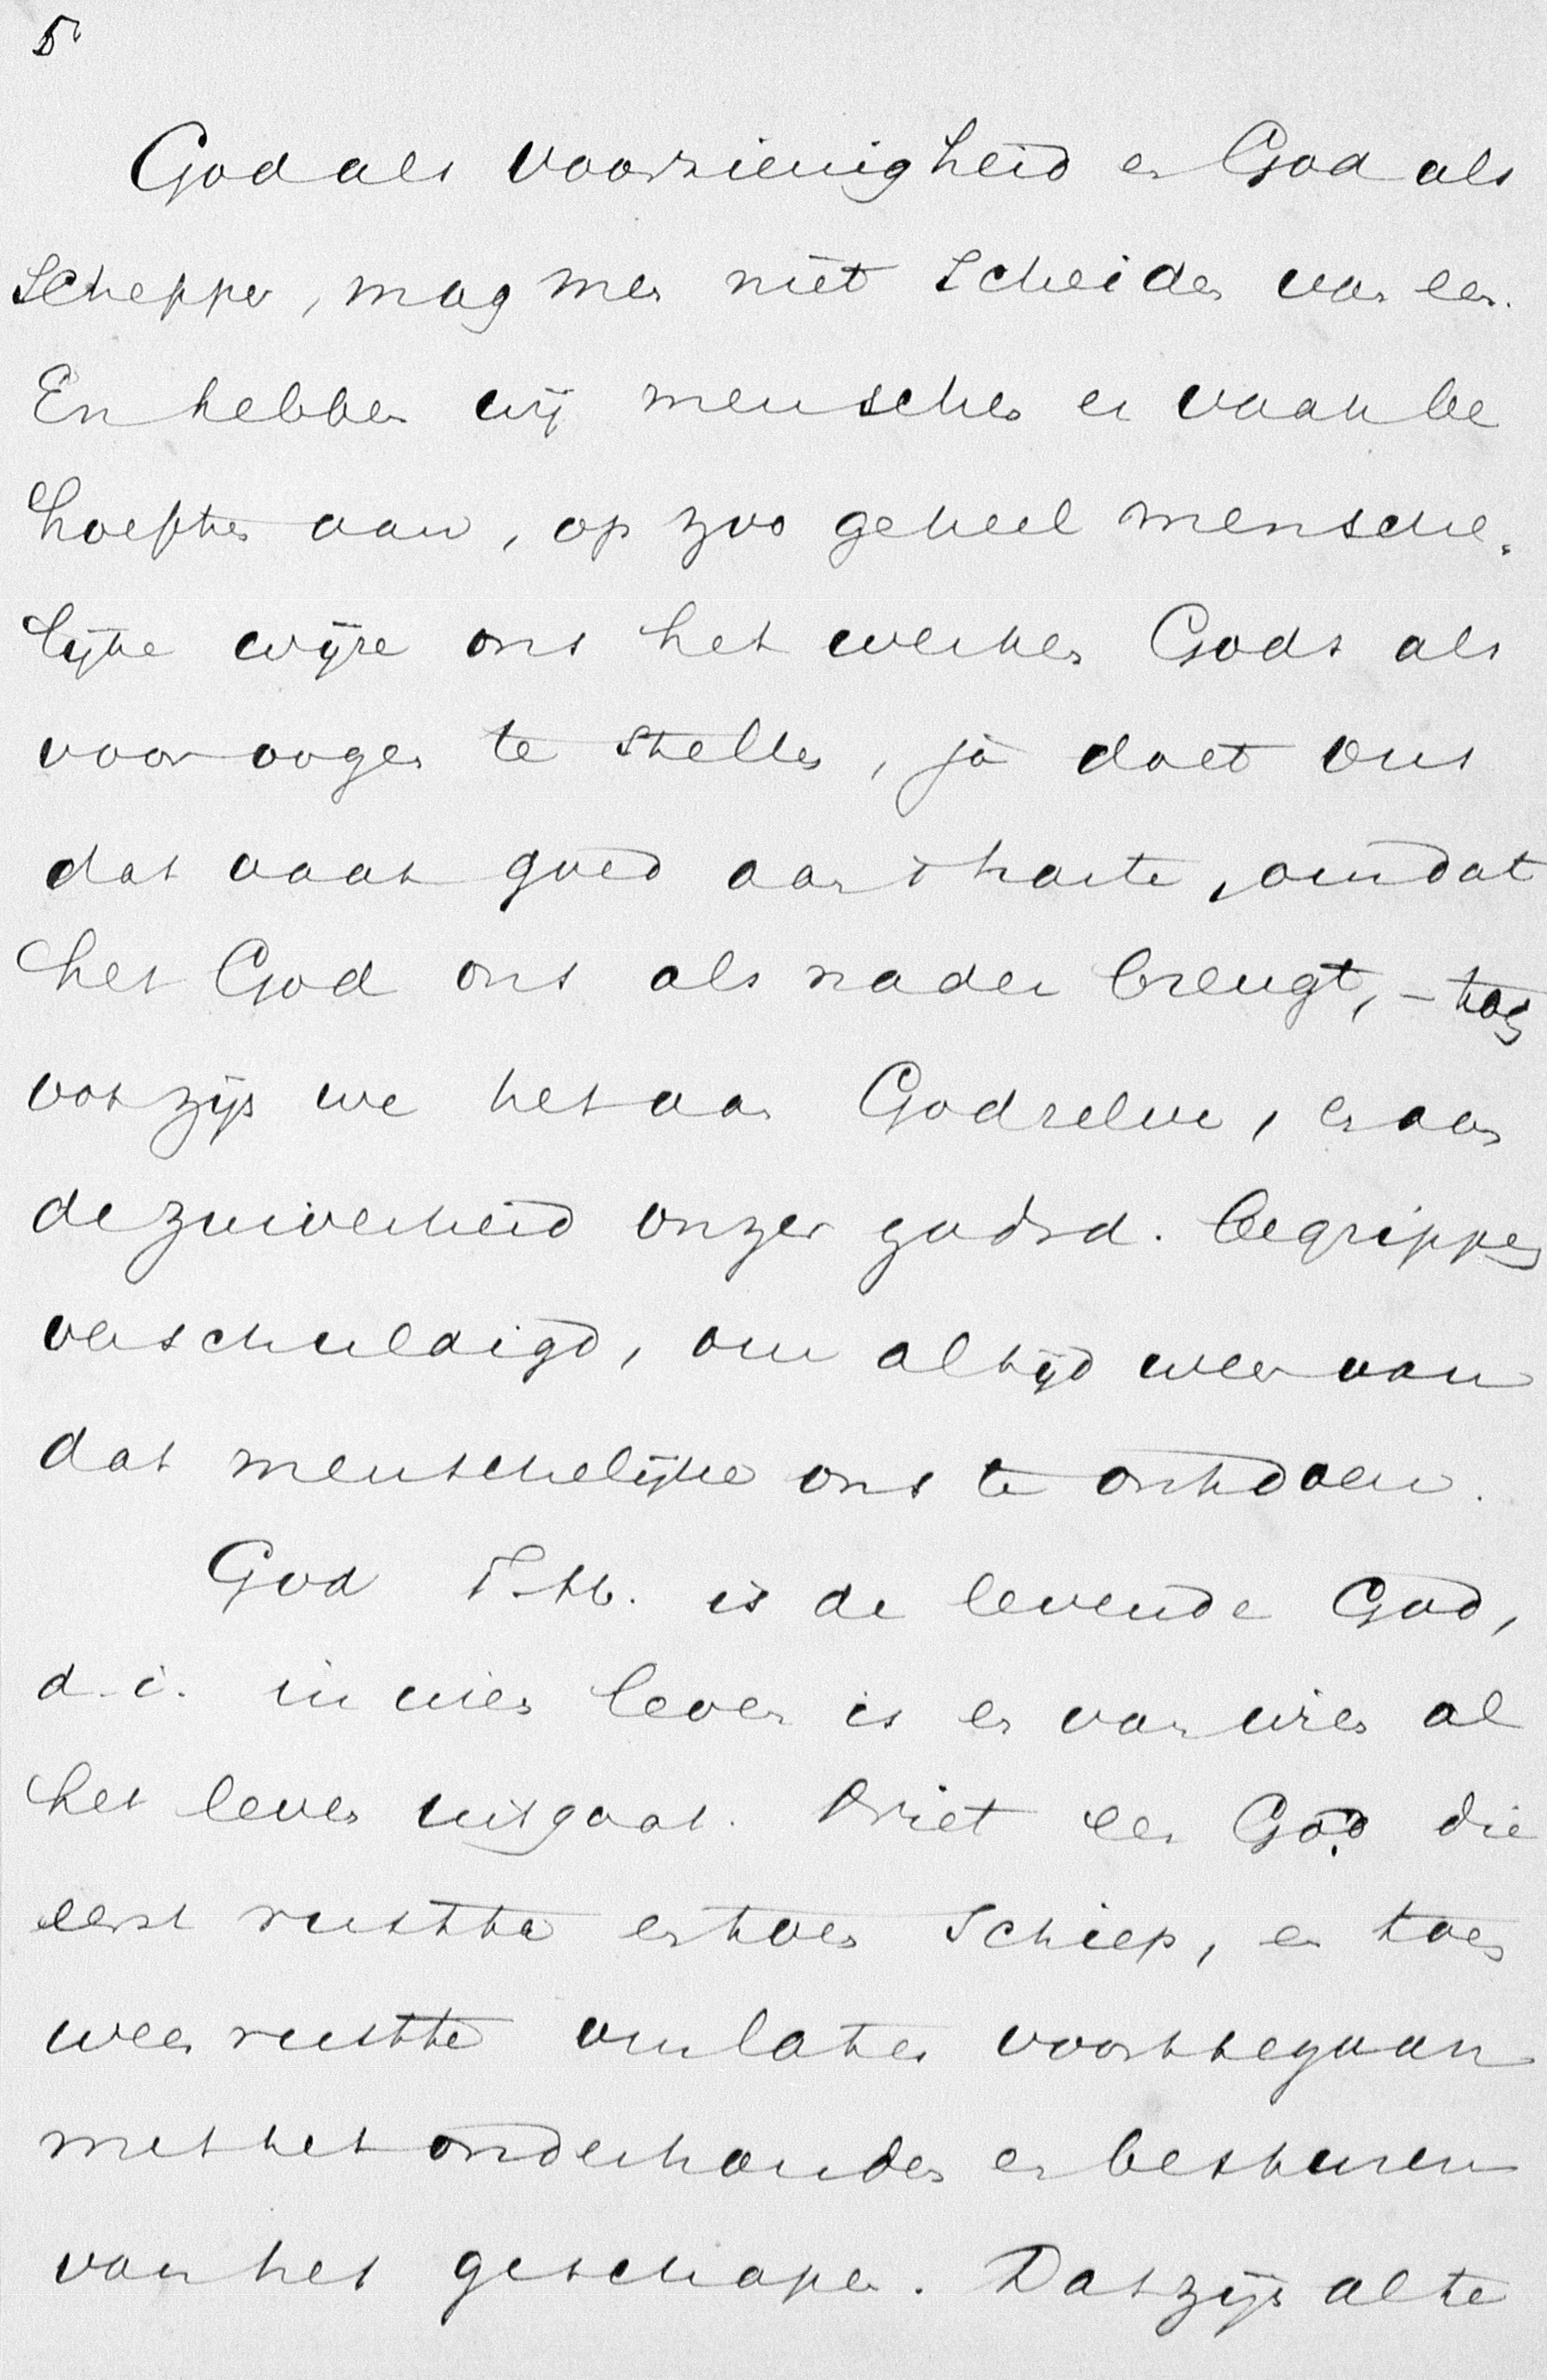 5
God als Voorzienigheid en God als
Schepper, mag men niet scheiden van een.
En hebben wij menschen er vaak be
hoeften aan, op zoo geheel mensche-
lijke wijze ons het werken Gods als
voor oogen te stellen, ja doet ons
dat vaak goed aan 't harte, omdat
het God ons als nader brengt, – toch
ook zijn we het aan God zelven, en aan
de zuiverheid onzer godsd. begrippen
verschuldigd, om altijd weer van
dat menschelijke ons te ontdoen.
God T.H. is de levende God,
d.i. in wien leven is en van wien al
het leven uitgaat. Niet een God die
eerst rustte en toen schiep, en toen
weer rustte om later voort te gaan
met het onderhouden en besturen
van het geschapen. Dat zijn al te